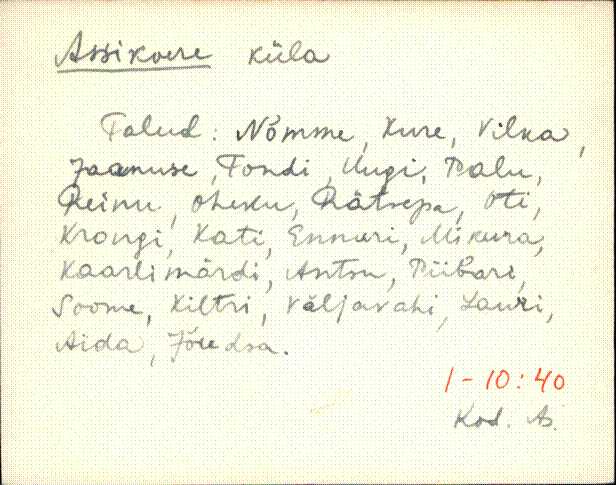 Assikvere küla
Talud: Nõmme, Kure, Vilka,
Jaanuse, Tondi, Uugi, Palu,
Reinu, Oheku, Rätsepa, Oti,
Krongi, Kati, Ennuri, Mikura,
Kaarlimärdi, Antsu, Piibari,
Soome, Kiltri, Väljavahi, Lauri,
Aida, Jõe
1-10:40
Kod. As.